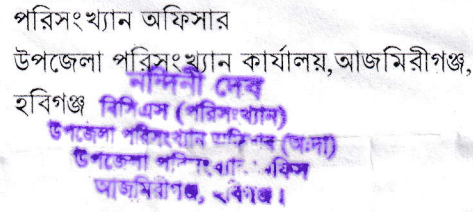 পরিসংখ্যান অফিসার
উপজেলা পরিসংখ্যান কার্যালয়,আজমিরীগঞ্জ,
হবিগঞ্জ
নন্দিনী দেব
বিসিএস (পরিসংখ্যান)
উপজেলা পরিসংখ্যান অফিসার (অঃদা)
উপজেলা পরিসংখ্যান অফিস
আজমিরীগঞ্জ, হবিগঞ্জ।